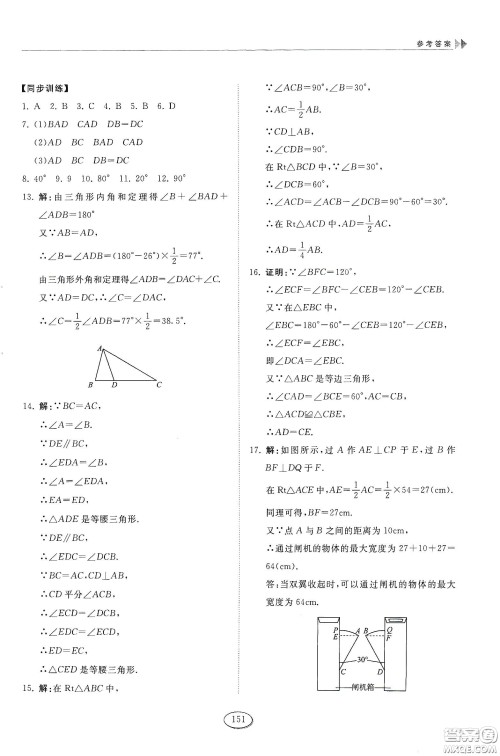 参考答案
【同步训练】
1. A 2. B 3. C 4. B 5. B 6. D
7. (1)BAD CAD DB=DC
(2)AD BC BAD CAD
(3)AD BC DB=DC
8. 40° 9. 9 10. 80° 11. 20° 12. 90°
13. 解:由三角形内角和定理得∠B+∠BAD+
∠ADB=180°
又∵AB=AD,
∴∠B=∠ADB=(180°-26°)×1/2=77°.
由三角形外角和定理得∠C+∠DAC=∠ADB.
又∵AD=DC,∴∠C=∠DAC,
∴∠C=1/2∠ADB=77°×1/2=38.5°.
A
B D C
14. 解:∵BC=AC,
∴∠A=∠B.
∵DE∥BC,
∴∠EDA=∠B.
∴∠A=∠EDA.
∴△ADE是等腰三角形.
∵DE∥BC,
∴∠EDC=∠BCD.
∵BC=AC,AD=BD,
∴CD平分∠ACB,
∴∠ECD=∠BCD,
∴∠EDC=∠ECD,
∴△CED是等腰三角形.
15. 解:在Rt△ABC中,
∵∠ACB=90°,∠B=30°,
∴AC=1/2AB.
∵CD⊥AB,
∴∠CDB=90°.
在Rt△BCD中,∵∠B=30°,
∴∠BCD=60°,
∴∠ACD=30°.
∴在Rt△ACD中,AD=1/2AC,
∴AD=1/4AB.
16. 证明:∵∠BFC=120°,
∴∠ECF=180°-120°-∠CEB.
又∵在△EBC中,
∠EBC=180°-60°-∠CEB,
∴∠ECF=∠EBC,
即∠DCA=∠EBC.
又∵△ABC是等边三角形,
∴∠CAD=∠BCE=60°,AC=BC,
∴△ACD≌△CBE.
∴AD=CE.
17. 解:如图所示,过A作AE⊥CP于E,过B作
BF⊥DQ于F.
在Rt△ACE中,AE=1/2AC=1/2×54=27(cm)
同理可得,BF=27cm.
又∵点A与B之间的距离为10cm,
∴通过闸机的物体的最大宽度为27+10+27=
64(cm)
答:当双翼收起时,可以通过闸机的物体的最
大宽度为64cm.
P A B Q
E F
30°
C D
闸机箱
151